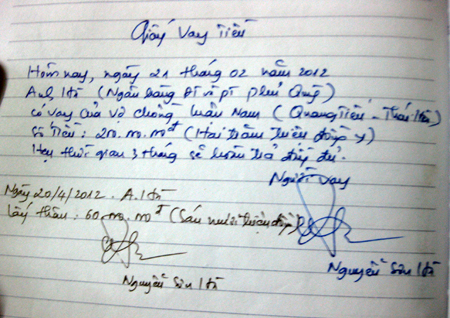 Giấy Vay Tiền
Hôm nay, ngày 21 tháng 02 năm 2012
Anh Hà (Ngân hàng ĐT và PT Phủ Quỳ)
có vay của vợ chồng Nam (Quang Tiến - Thái Hòa)
Số tiền: 200.000.000đ (Hai trăm triệu đồng)
Hẹn thời gian 3 tháng sẽ hoàn trả đầy đủ.
Người vay
Ngày 20/4/2012. A. Hà
lấy thêm: 60.000.000đ (Sáu mươi triệu đồng)
Nguyễn Sơn Hà
Nguyễn Sơn Hà